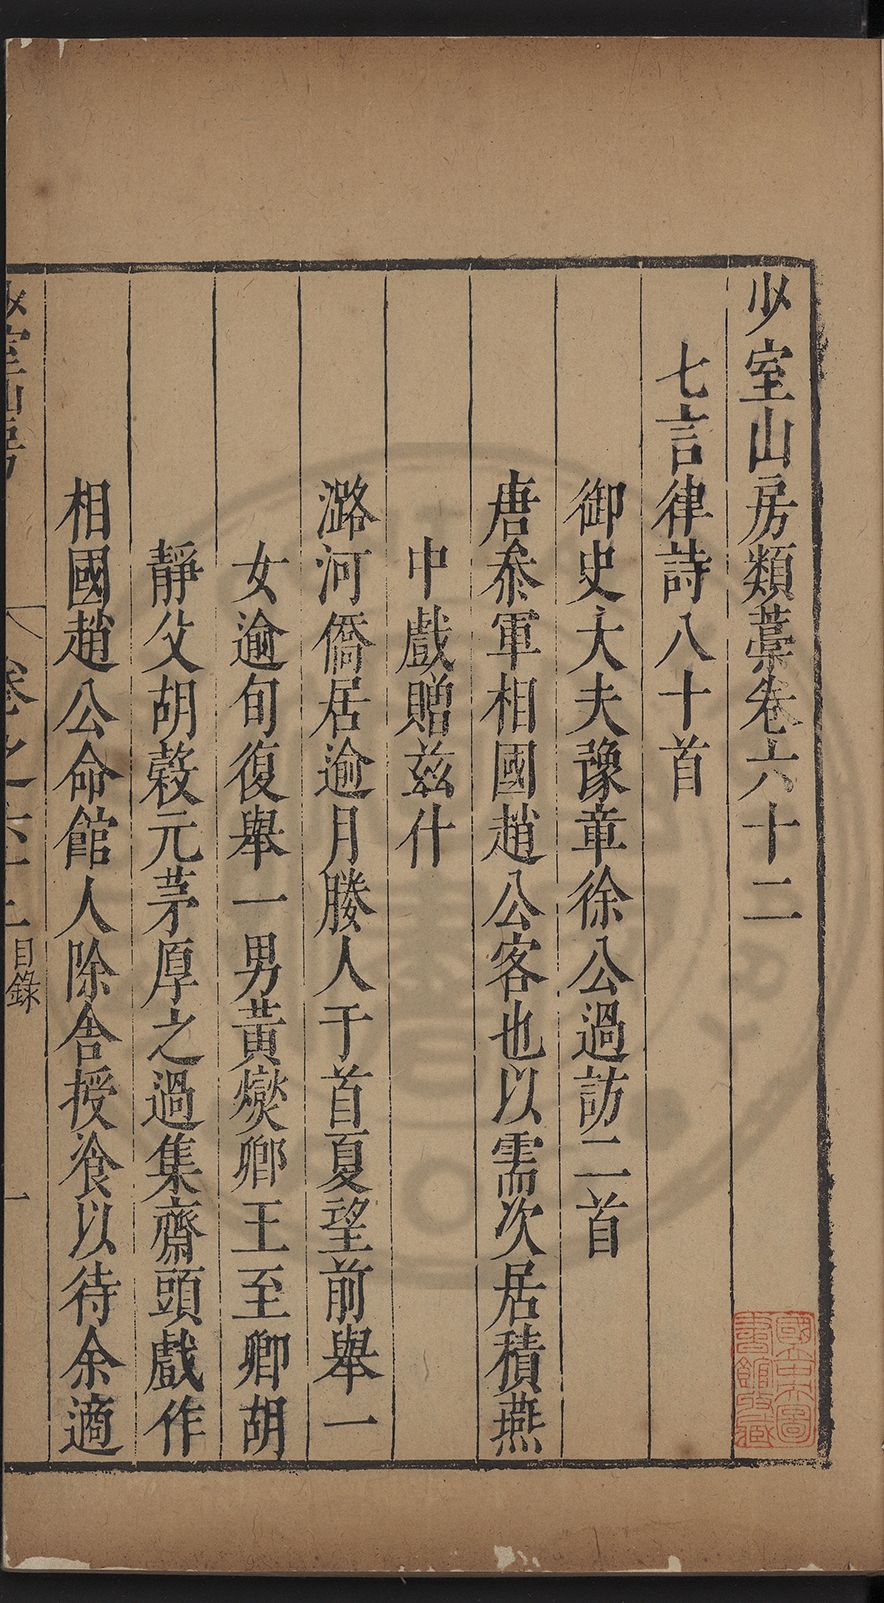 少室山房類藁卷六十二
七言律詩八十首
御史大夫豫章徐公過訪二首
唐叅軍相國趙公客也以需次居積燕
中戲贈兹什
潞河僑居逾月媵人于首夏望前舉一
女逾旬復舉一男黃爕卿王至卿胡
靜父胡穀元茅厚之過集齋頭戲作
相國趙公命館人除舍授飡以待余適
少室山房
卷之六十二
目錄
一
國立北平圖書館收藏